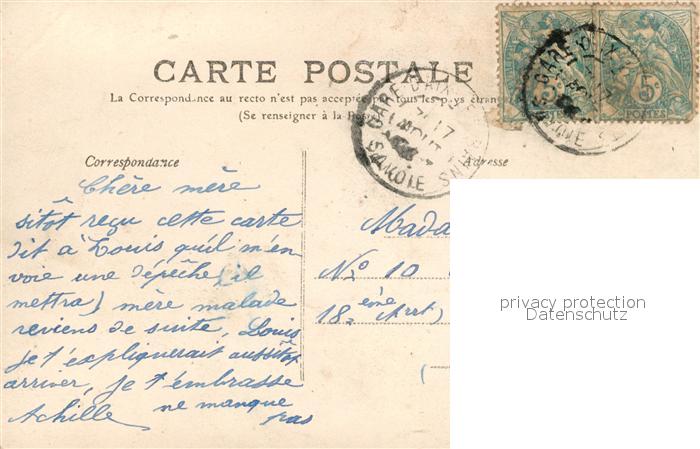 CARTE POSTALE
La Correspondance au recto n'est pas acceptée par tous les pays étrang
(Se renseigner à la Poste)
GARE D'AIX
SAVOIE
5c
POSTES
Correspondance
Adresse
Chère mère
sitôt reçu cette carte
dit à Louis qu'il m'en
voie une dépêche (il
mettra) mère malade
reviens de suite, Louis
je t'expliquerait aussitôt
arriver, je t'embrasse
Achille ne manque
pas
Mada
No 10
18 ème (Arrt)
(
privacy protection
Datenschutz